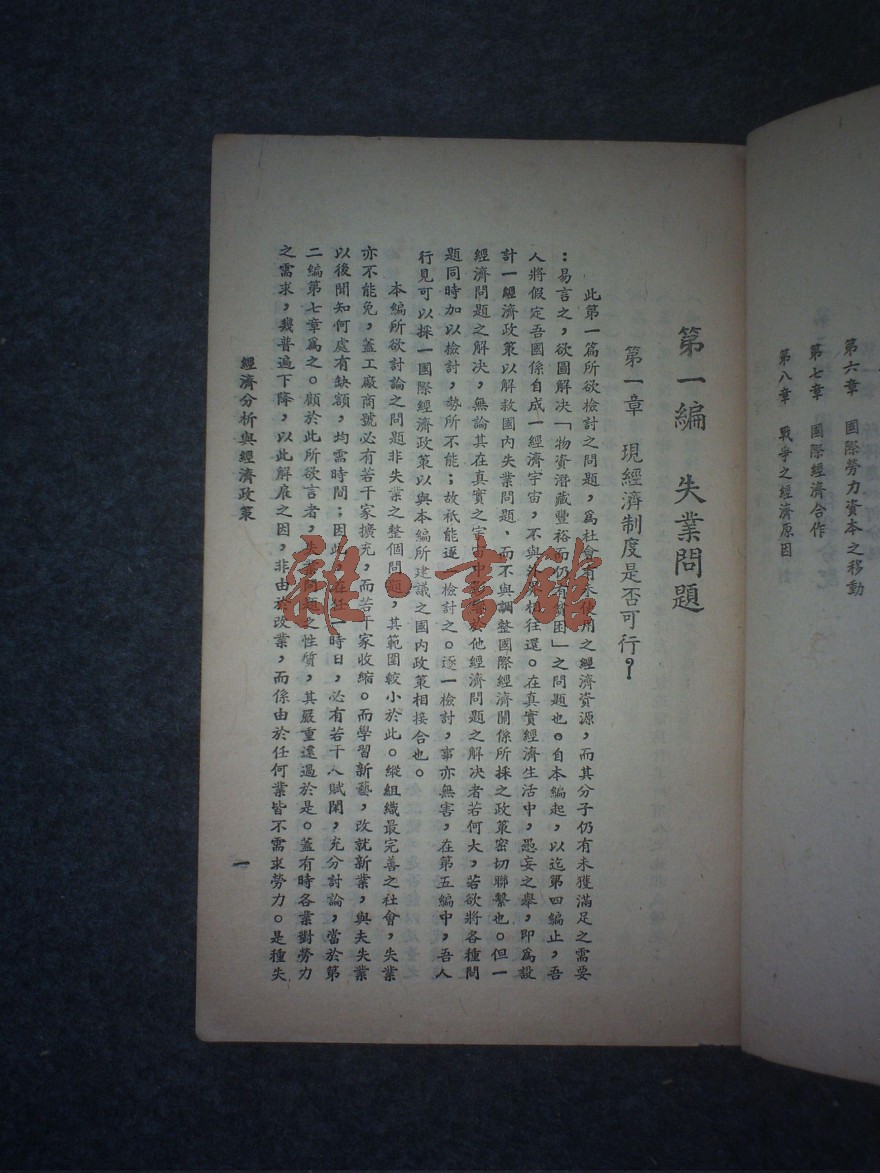 第六章 國際勞力資本之移動
第七章 國際經濟合作
第八章 戰爭之經濟原因
第一編 失業問題
第一章 現經濟制度是否可行？
此第一篇所欲檢討之問題，為社會有未使用之經濟資源，而其分子仍有未獲滿足之需要
：易言之，欲圖解決「物資潛藏豐裕而仍有貧困」之問題也。自本編起，以迄第四編止，吾
人將假定吾國係自成一經濟宇宙，不與外界相往還。在真實經濟生活中，愚妄之舉，即為設
計一經濟政策以解救國內失業問題，而不與調整國際經濟關係所採之政策密切聯繫也。但一
經濟問題之解決，無論其在真實之宇宙中其他經濟問題之解決者若何大，若欲將各種問
題同時加以檢討，勢所不能；故祇能逐一檢討之。逐一檢討，事亦無害，在第五編中，吾人
行見可以採一國際經濟政策以與本編所建議之國內政策相接合也。
本編所欲討論之問題非失業之整個問題，其範圍較小於此。縱組織最完善之社會，失業
亦不能免，蓋工廠商號必有若干家擴充，而若干家收縮。而學習新藝，改就新業，與夫失業
以後聞知何處有缺額，均需時間；因此，在任一時日，必有若干人賦閑，充分討論，當於第
二編第七章為之。顧於此所欲言者，失業問題之性質，其嚴重遠過於是。蓋有時各業對勞力
之需求，幾普遍下降，以此解雇之因，非由於改業，而係由於任何業皆不需求勞力。是種失
經濟分析與經濟政策
一
雜·書館